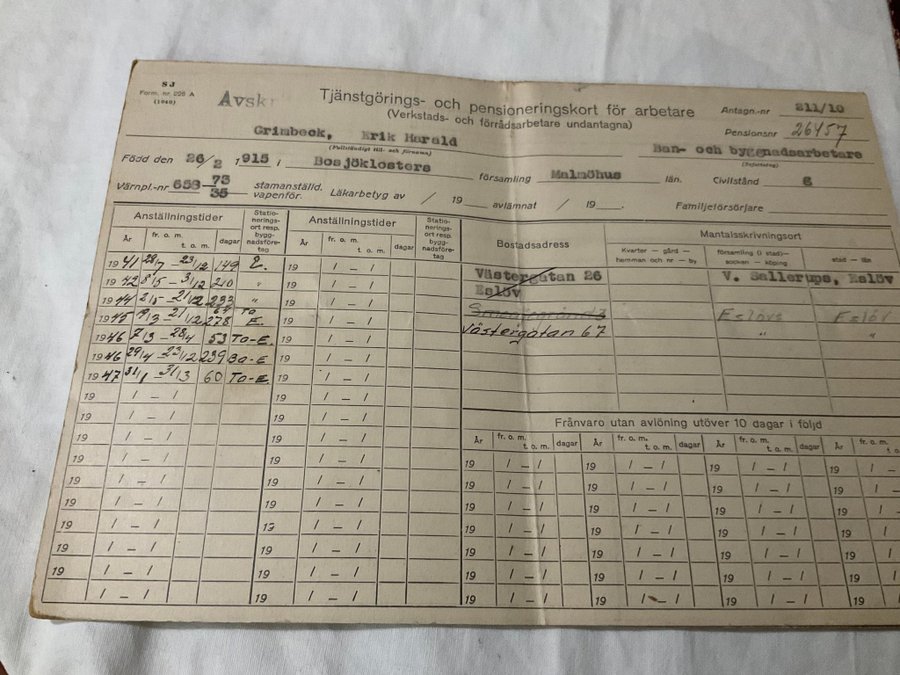 SJ
Form. nr 225 A
(1940)
Avskr
Tjänstgörings- och pensioneringskort för arbetare
(Verkstads- och förrådsarbetare undantagna)
Antagn.-nr 211/10
Pensionsnr 26457
Grimbeck, Erik Harald
(Fullständigt till- och förnamn)
Ban- och byggnadsarbetare
(Befattning)
Född den 26/2 1915 i Bosjöklosters församling Malmöhus län. Civilstånd G
Värnpl.-nr 658 73/35 stamanställd. vapenför. Läkarbetyg av / 19 avlämnat / 19 . Familjeförsörjare
Anställningstider
År fr. o. m. t. o. m. dagar
Stationeringsort resp. byggnadsföretag
Anställningstider
År fr. o. m. t. o. m. dagar
Stationeringsort resp. byggnadsföretag
Bostadsadress
Mantalsskrivningsort
Kvarter — gård — hemman och nr — by
församling (i stad) — socken — köping
stad — län
1941 28/7 – 23/12 149 E. 19 / – /
1942 8/5 – 3/12 210 " 19 / – /
1944 2/5 – 21/12 233 " 19 / – /
1945 19/3 – 21/12 278 To E. 19 / – /
1946 7/3 – 28/4 53 To-E. 19 / – /
1946 29/4 – 23/12 239 Ba-E 19 / – /
1947 31/1 – 31/3 60 To-E. 19 / – /
Västergatan 26 V. Sallerups, Eslöv
Eslöv
Eslövs Eslöv
Västergatan 67 " "
19 / – / 19 / – /
19 / – / 19 / – /
Frånvaro utan avlöning utöver 10 dagar i följd
År fr. o. m. t. o. m. dagar År fr. o. m. t. o. m. dagar År fr. o. m. t. o. m. dagar År fr. o. m.
19 / – / 19 / – / 19 / – / 19 / – / 19 / – / 19 / –
19 / – / 19 / – / 19 / – / 19 / – / 19 / – / 19 / –
19 / – / 19 / – / 19 / – / 19 / – / 19 / – / 19 / –
19 / – / 19 / – / 19 / – / 19 / – / 19 / – / 19 / –
19 / – / 19 / – / 19 / – / 19 / – / 19 / – / 19 / –
19 / – / 19 / – / 19 / – / 19 / – / 19 / – / 19 / –
19 / – / 19 / – / 19 / – / 19 / – / 19 / – / 19 / –